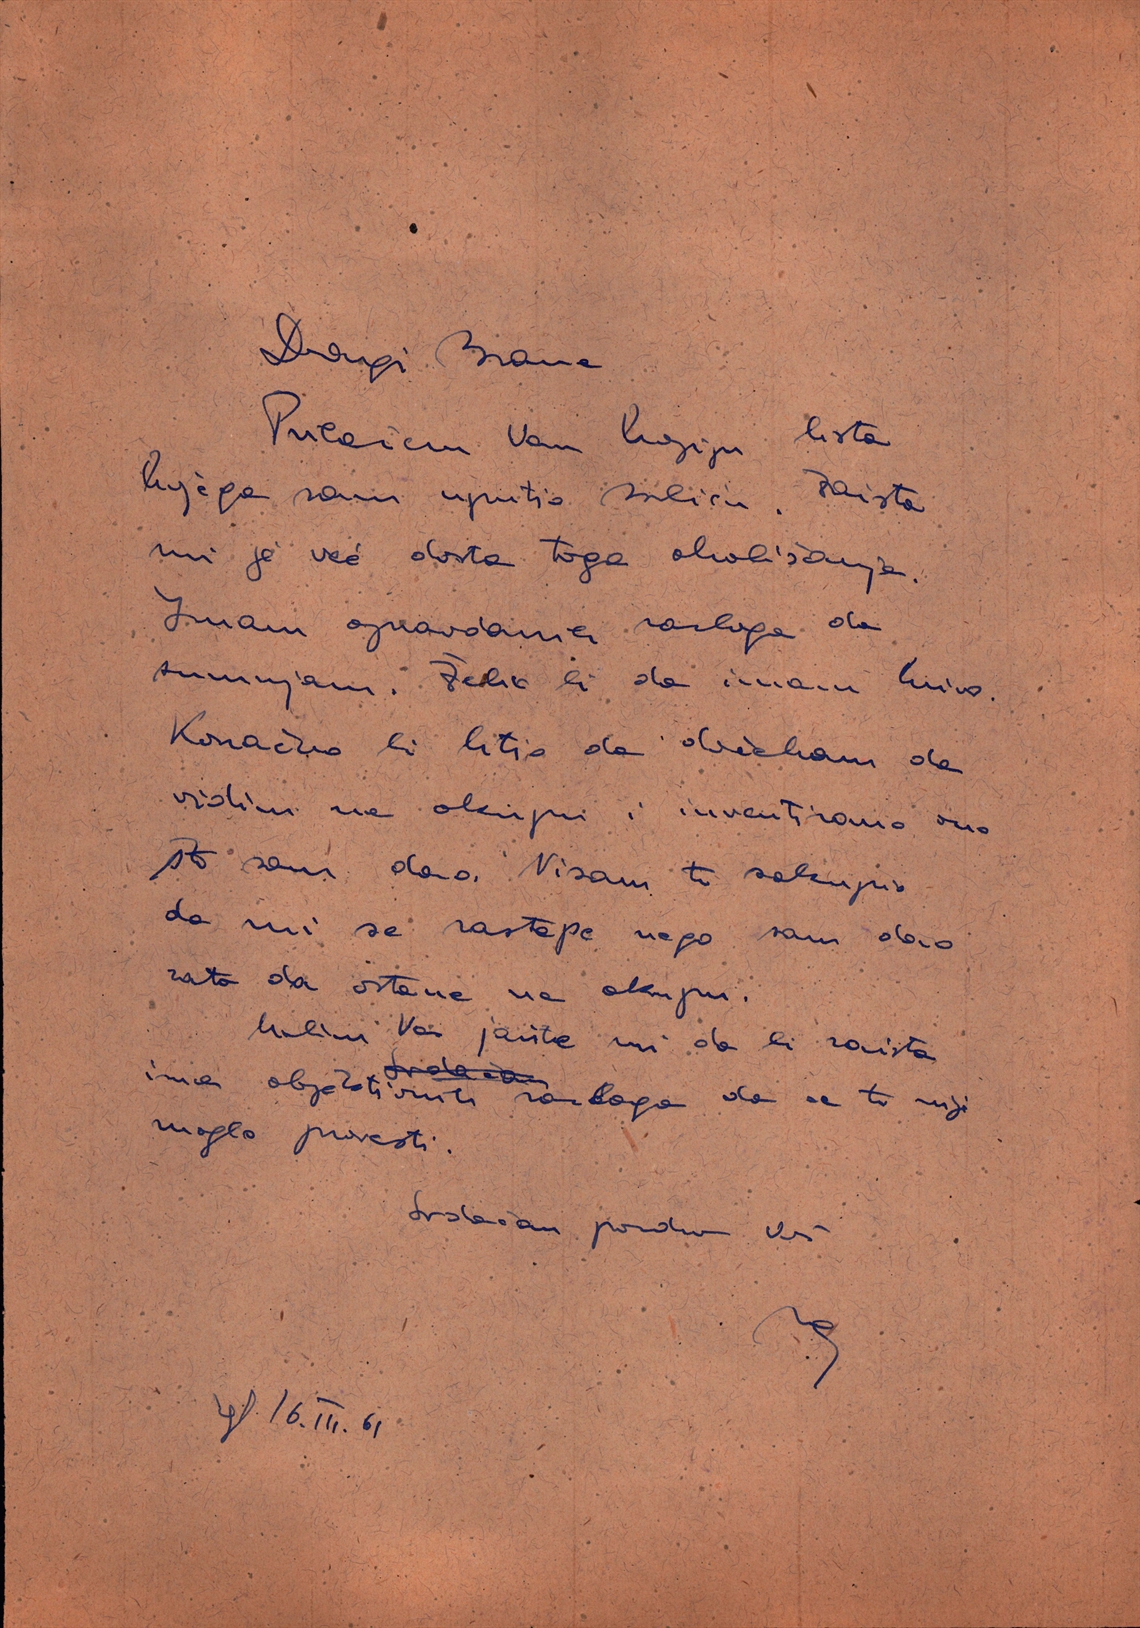 Dragi Brane
Prilažem Vam kopiju lista
kojega sam uputio Iliću. Zaista
mi je već dosta toga okolišanja.
Imam opravdanih razloga da
sumnjam. Želio bi da imam krivo.
Konačno bi htio da dočekam da
vidim na okupu i inventirano ono
što sam dao. Nisam to sakupio
da mi se rastepe nego sam dao
zato da ostane na okupu.
Molim Vas javite mi da li zaista
ima objektivnih razloga da se to nije
moglo provesti.
Srdačan pozdrav Vaš
Zgb. 16. III. 61